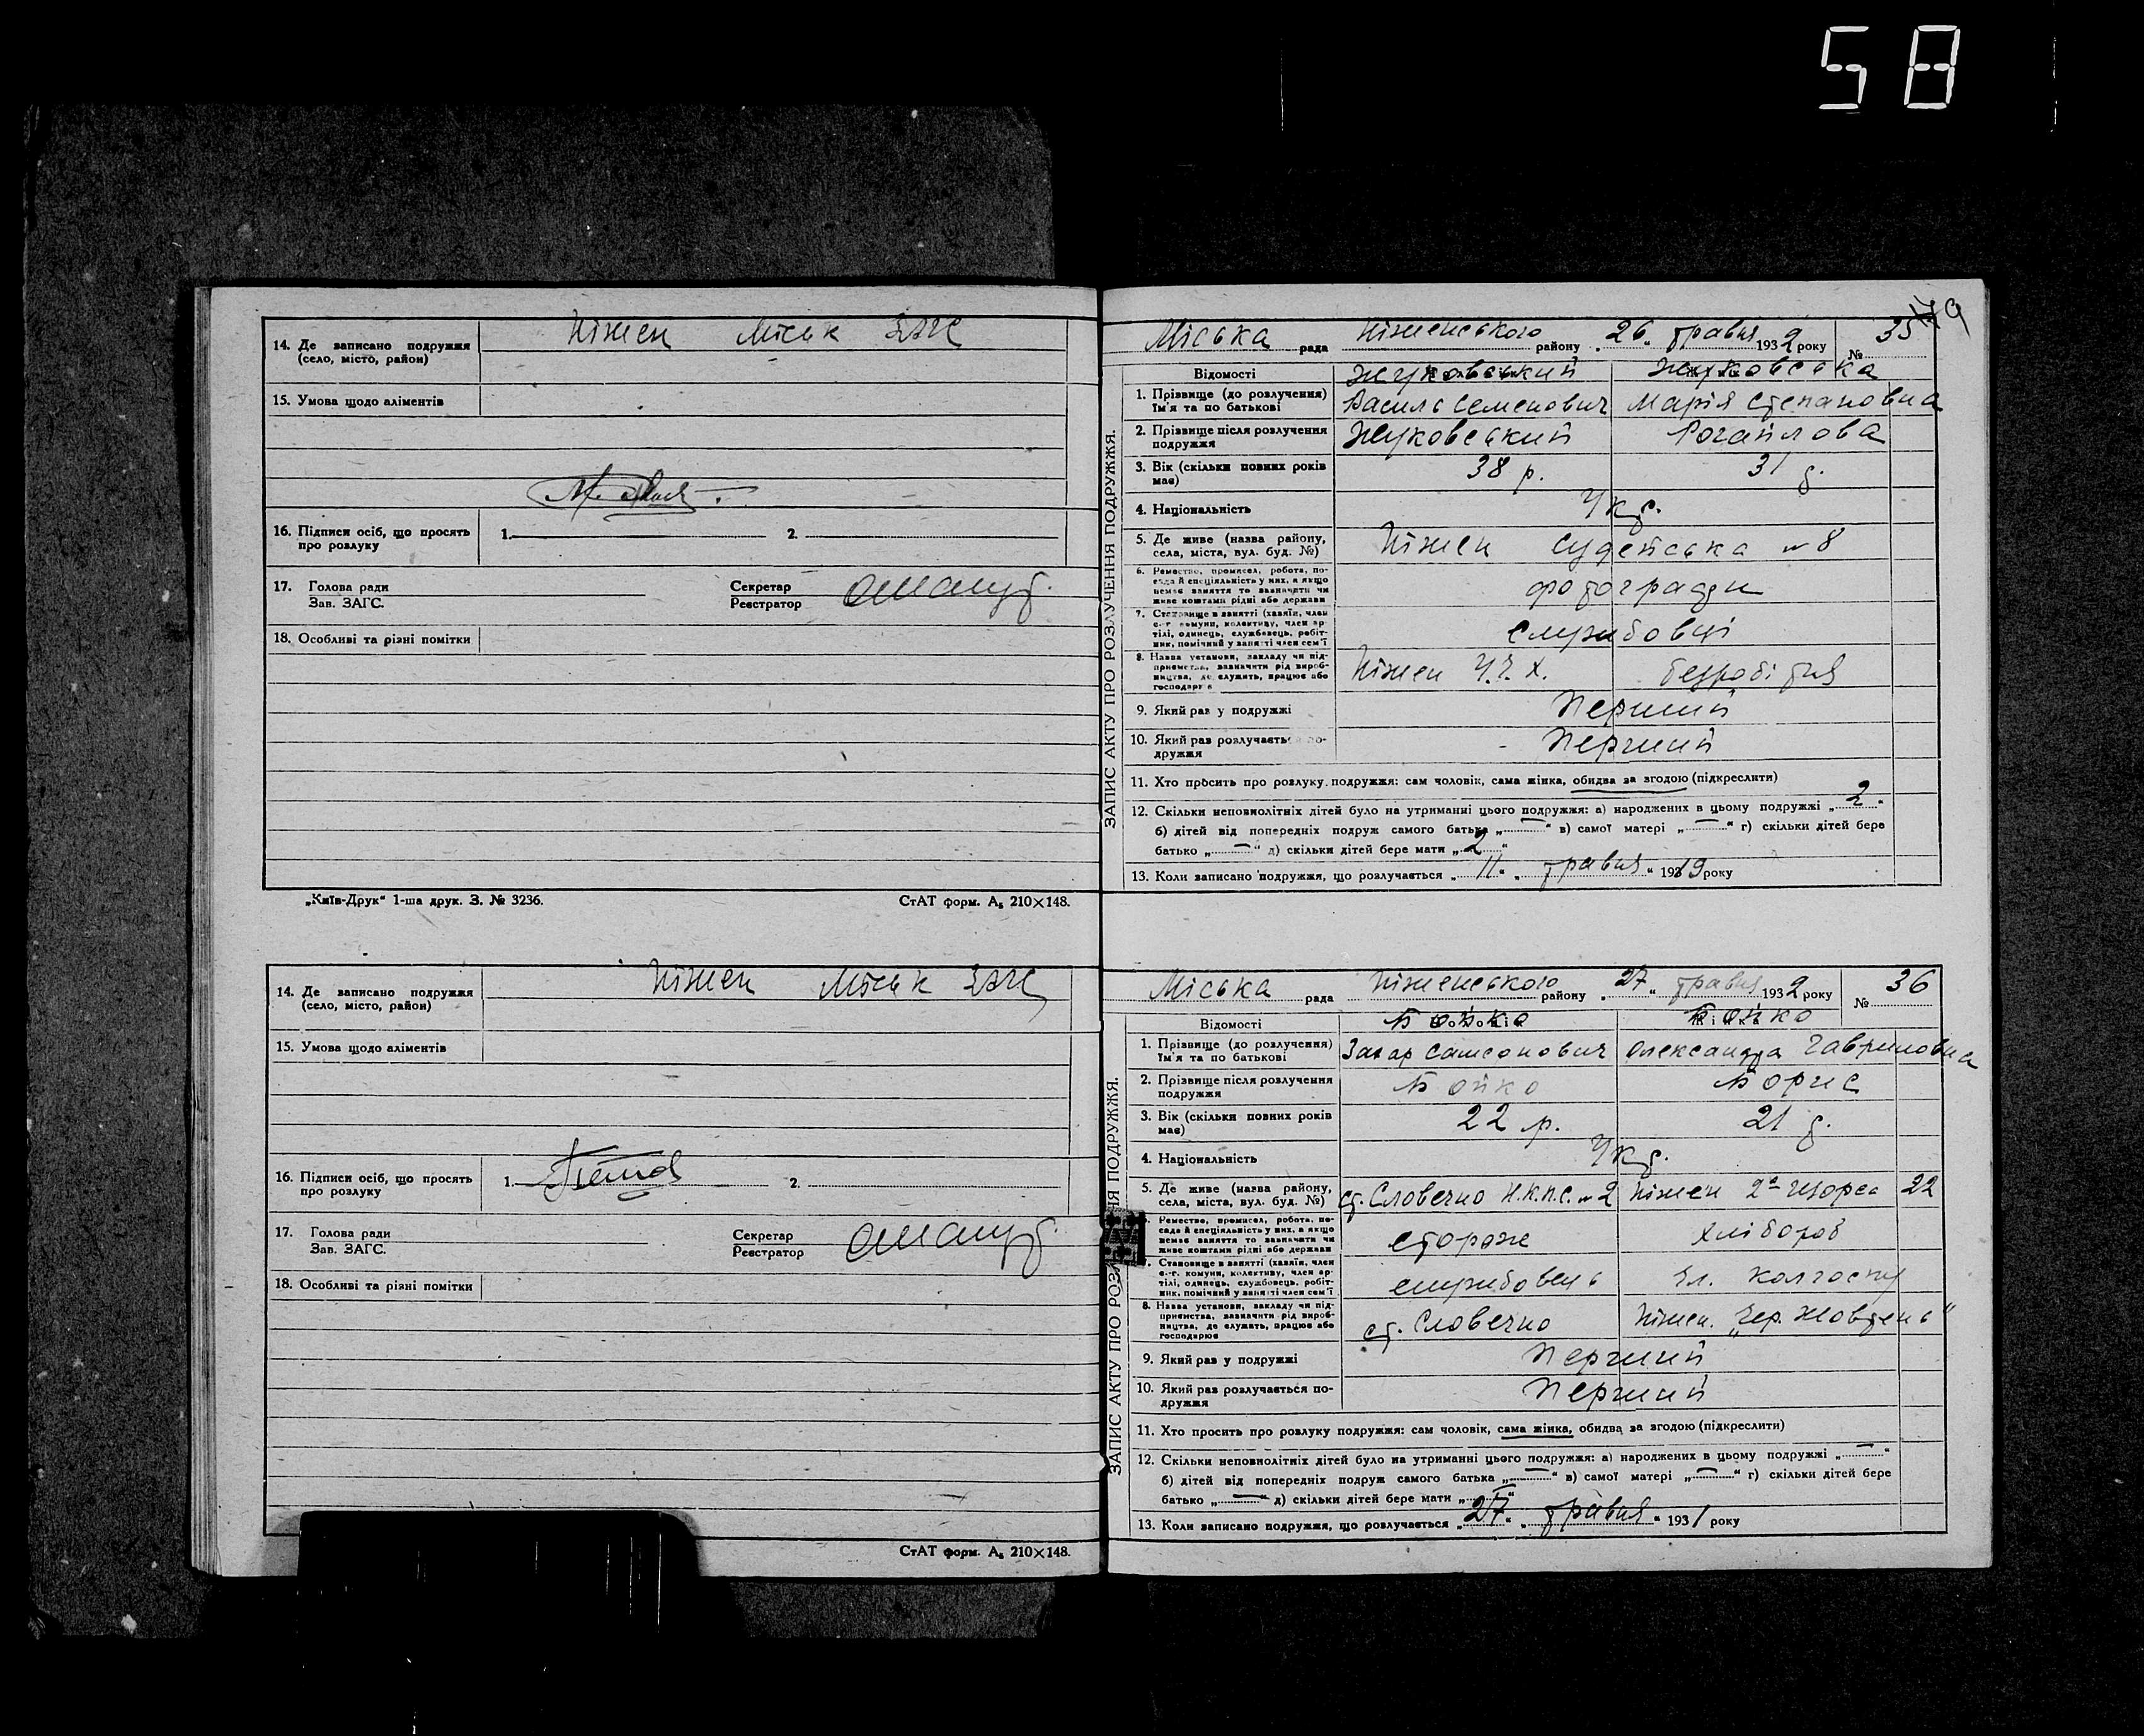 58
14. Де записано подружжя
(село, місто, район)
Ніжен Міськ ЗАГС
15. Умова щодо аліментів
16. Підписи осіб, що просять
про розлуку
1. 2.
17. Голова ради
Зав. ЗАГС.
Секретар
Реєстратор
18. Особливі та різні помітки
„Київ-Друк“ 1-ша друк. З. № 3236.
СтАТ форм. А₅ 210×148.
14. Де записано подружжя
(село, місто, район)
Ніжен Міськ ЗАГС
15. Умова щодо аліментів
16. Підписи осіб, що просять
про розлуку
1. 2.
17. Голова ради
Зав. ЗАГС.
Секретар
Реєстратор
18. Особливі та різні помітки
СтАТ форм. А₅ 210×148.
ЗАПИС АКТУ ПРО РОЗЛУЧЕННЯ ПОДРУЖЖЯ.
Міська рада Ніженського району „26“ травня 1932 року № 35
Відомості Жуковський Жуковська
1. Прізвище (до розлучення)
Ім'я та по батькові
Василь Семенович Марія Степановна
2. Прізвище після розлучення
подружжя
Жуковський
3. Вік (скільки повних років
має)
38 р. 31 р.
4. Національність
Укр.
5. Де живе (назва району,
села, міста, вул. буд. №)
Ніжен Судейська № 8
6. Ремество, промисел, робота, по-
сада й спеціяльність у них, а якщо
немає заняття то зазначити чи
живе коштами рідні або держави
фотографи
7. Становище в занятті (хазяїн, член
с.-г. комуни, колективу, член ар-
тілі, одинець, службовець, робіт-
ник, помічний у занятті член сем'ї
службовці
8. Назва установи, закладу чи під-
приємства, зазначити рід вироб-
ництва, де служить, працює або
господарює
Ніжен У.Ч.Х. безробітня
9. Який раз у подружжі
Перший
10. Який раз розлучається по-
дружжя
Перший
11. Хто просить про розлуку подружжя: сам чоловік, сама жінка, обидва за згодою (підкреслити)
12. Скільки неповнолітніх дітей було на утриманні цього подружжя: а) народжених в цьому подружжі „2“
б) дітей від попередніх подруж самого батька „—“ в) самої матері „—“ г) скільки дітей бере
батько „—“ д) скільки дітей бере мати „2“
13. Коли записано подружжя, що розлучається „11“ „травня“ 1919 року
ЗАПИС АКТУ ПРО РОЗЛУЧЕННЯ ПОДРУЖЖЯ.
Міська рада Ніженського району „27“ травня 1932 року № 36
Відомості Бойко Бойко
1. Прізвище (до розлучення)
Ім'я та по батькові
Захар Самсонович Олександра Гавриловна
2. Прізвище після розлучення
подружжя
Бойко
3. Вік (скільки повних років
має)
22 р. 21 р.
4. Національність
Укр.
5. Де живе (назва району,
села, міста, вул. буд. №)
ст. Словечно Н.К.П.С. № 2 Ніжен 2ª Щорса 22
Ремество, промисел, робота, по-
сада й спеціяльність у них, а якщо
немає заняття то зазначити чи
живе коштами рідні або держави
стороже хлібороб
Становище в занятті (хазяїн, член
с.-г. комуни, колективу, член ар-
тілі, одинець, службовець, робіт-
ник, помічний у занятті член сем'ї
службовець чл. колгоспу
8. Назва установи, закладу чи під-
приємства, зазначити рід вироб-
ництва, де служить, працює або
господарює
ст. Словечно Ніжен. „Чер. Жовтень“
9. Який раз у подружжі
Перший
10. Який раз розлучається по-
дружжя
Перший
11. Хто просить про розлуку подружжя: сам чоловік, сама жінка, обидва за згодою (підкреслити)
12. Скільки неповнолітніх дітей було на утриманні цього подружжя: а) народжених в цьому подружжі „—“
б) дітей від попередніх подруж самого батька „—“ в) самої матері „—“ г) скільки дітей бере
батько „—“ д) скільки дітей бере мати „—“
13. Коли записано подружжя, що розлучається „27“ „травня“ 1931 року